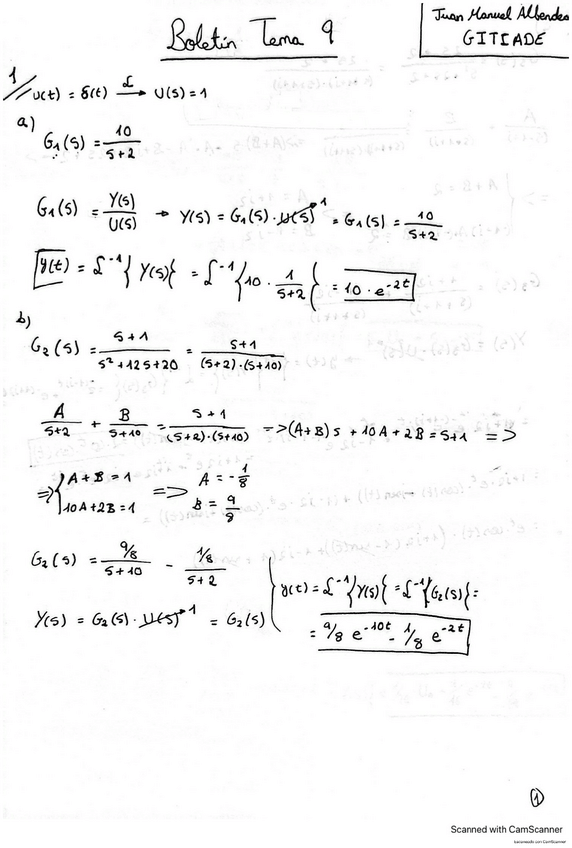 Boletín Tema 9
Juan Manuel Albendea
GITIADE
1
u(t) = δ(t) ℒ→ U(s) = 1
a)
G₁(s) = 10/(s+2)
G₁(s) = Y(s)/U(s) → Y(s) = G₁(s) · U(s)¹ = G₁(s) = 10/(s+2)
y(t) = ℒ⁻¹{Y(s)} = ℒ⁻¹{10 · 1/(s+2)} = 10 · e^(-2t)
b)
G₂(s) = (s+1)/(s²+12s+20) = (s+1)/((s+2)·(s+10))
A/(s+2) + B/(s+10) = (s+1)/((s+2)·(s+10)) => (A+B)s + 10A + 2B = s+1 =>
=> { A+B = 1 => A = -1/8
10A+2B = 1 B = 9/8
G₂(s) = (9/8)/(s+10) - (1/8)/(s+2)
Y(s) = G₂(s) · U(s)¹ = G₂(s)
y(t) = ℒ⁻¹{Y(s)} = ℒ⁻¹{G₂(s)} =
= 9/8 e^(-10t) - 1/8 e^(-2t)
1
Scanned with CamScanner